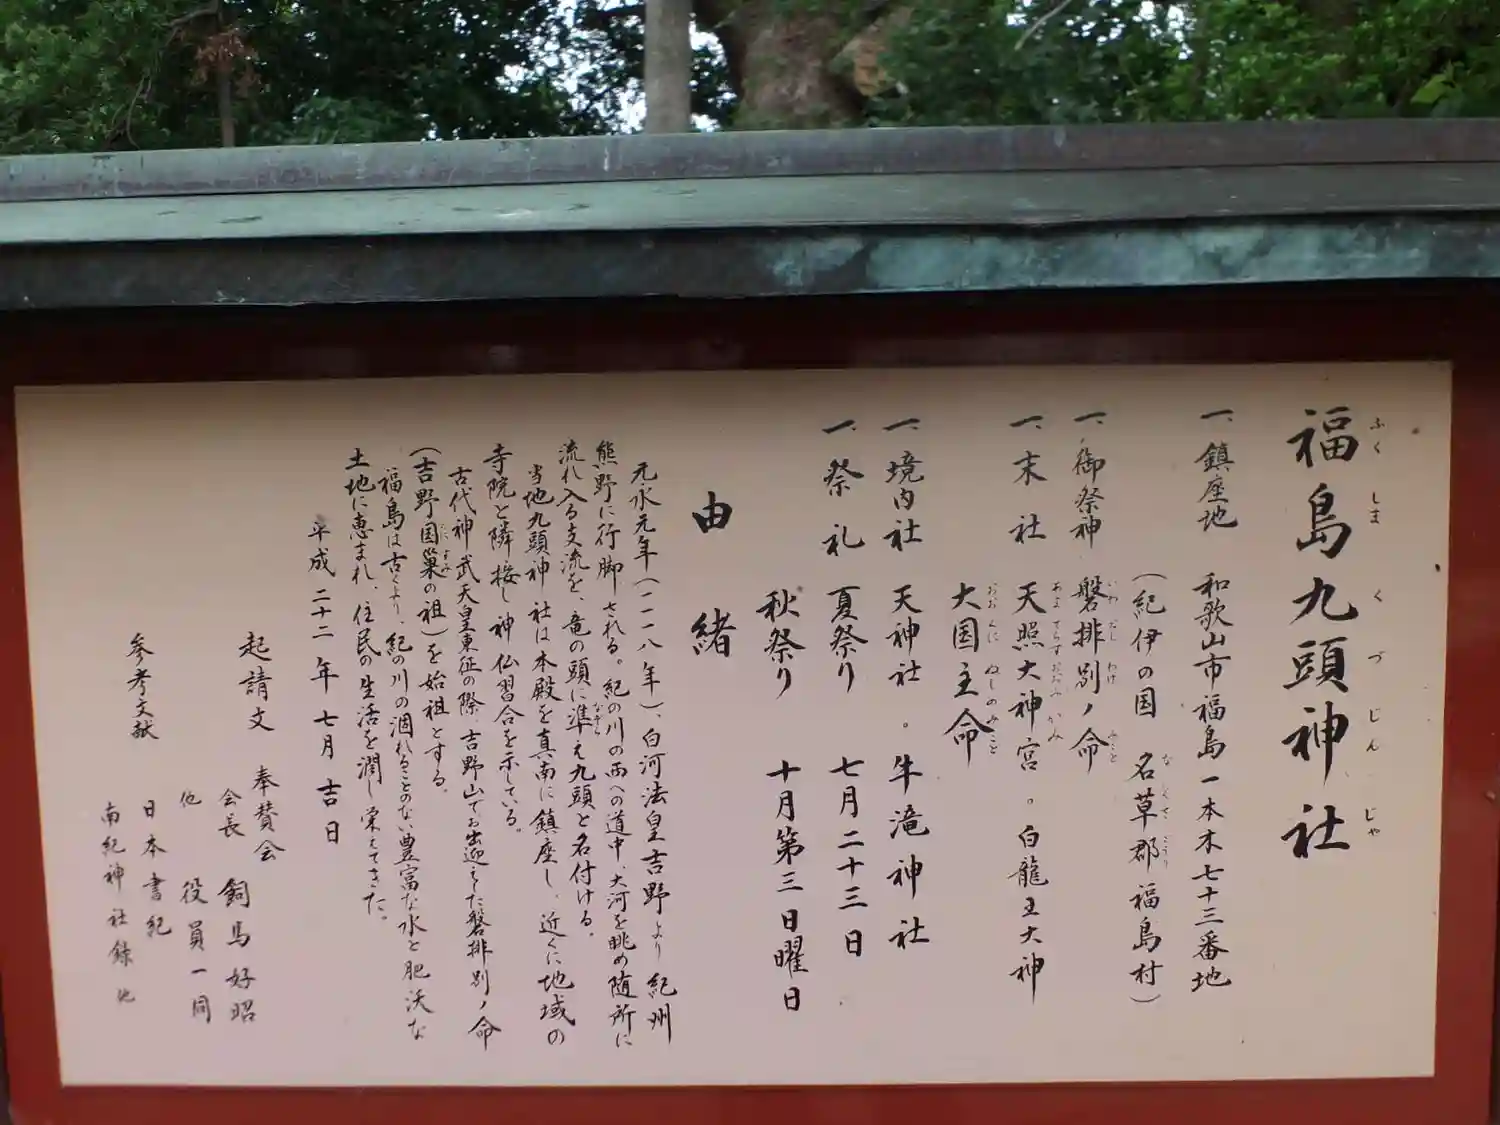 福島九頭神社
ふくしまくづじんじゃ
一、鎮座地 和歌山市福島一本木七十三番地
(紀伊の国 名草郡福島村)
なくさこうり
一、御祭神 磐排別ノ命
いわおしわけ みこと
一、末社 天照大神宮。白龍王大神
あまてらすおおみかみ
大国主命
おおくにぬしのみこと
一、境内社 天神社。牛滝神社
一、祭礼 夏祭り 七月二十三日
秋祭り 十月第三日曜日
由緒
元永元年(一一一八年)、白河法皇吉野より紀州
熊野に行脚される。紀の川の西への道中、大河を眺め随所に
流れ入る支流を、竜の頭に準え九頭と名付ける。
なぞら
当地九頭神社は本殿を真南に鎮座し、近くに地域の
寺院と隣接し神仏習合を示している。
古代神武天皇東征の際、吉野山でお出迎えした磐排別ノ命
(吉野国巣の祖)を始祖とする。
くにすみ
福島は古くより、紀の川の涸れることのない豊富な水と肥沃な
土地に恵まれ、住民の生活を潤し栄えてきた。
平成二十二年七月吉日
起請文 奉賛会
会長 飼馬好昭
他 役員一同
参考文献 日本書紀
南紀神社録 他